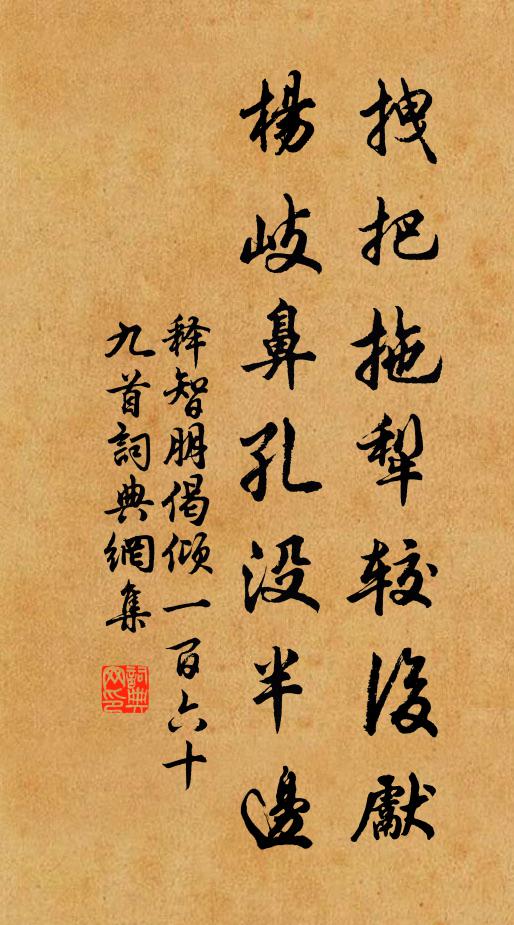 拽把拖犁较後獻
楊岐鼻孔没半邊
释智朋偈倾一百六十
九首詞典網集
詞典网印